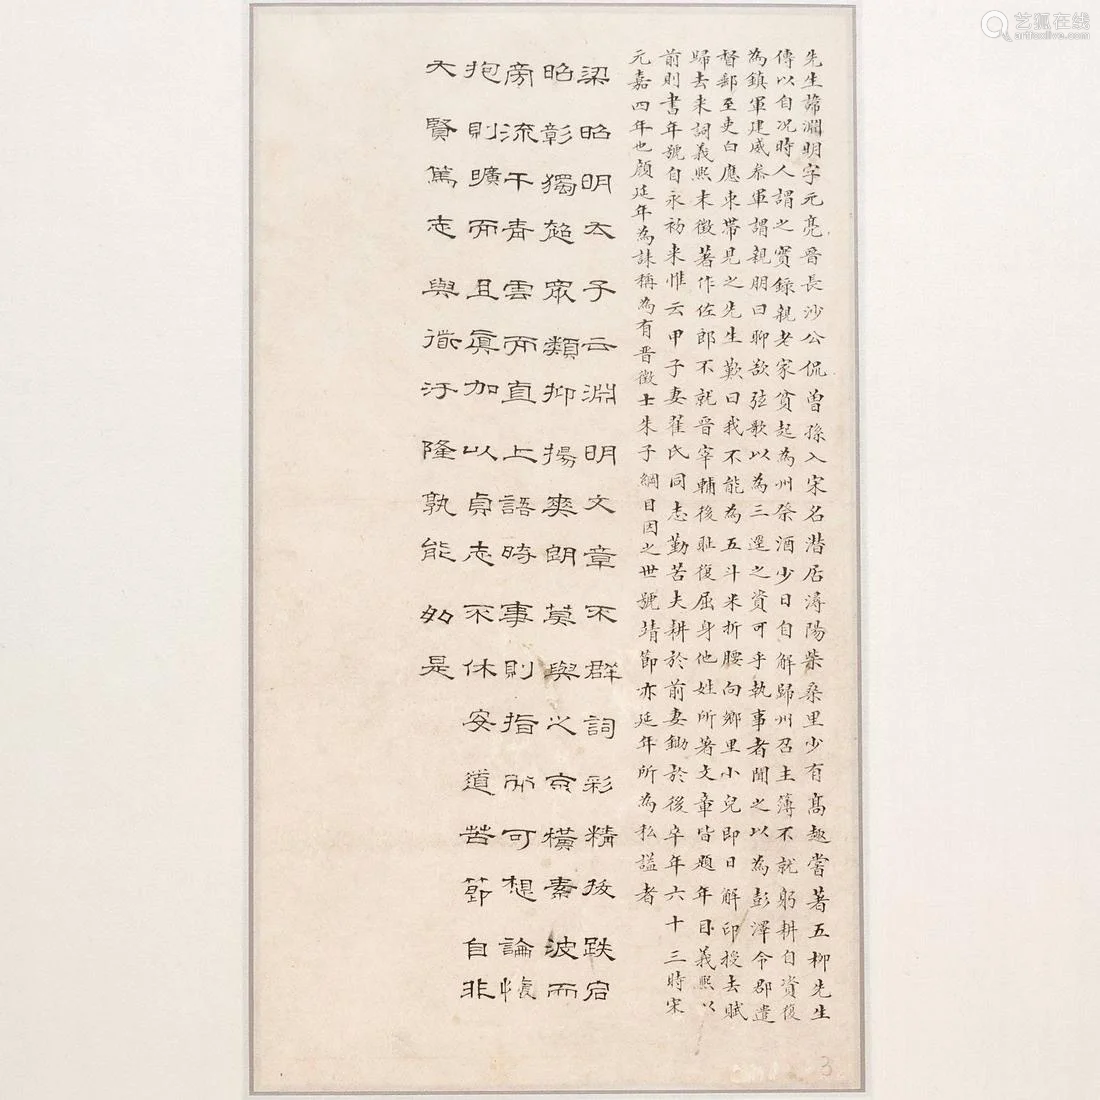 先生諱淵明字元亮晉長沙公侃曾孫入宋名潛居潯陽柴桑里少有髙趣嘗著五柳先生
傳以自况時人謂之實錄親老家貧起為州祭酒少日自解歸州召主簿不就躬耕自資復
為鎮軍建威叅軍謂親朋曰聊欲弦歌以為三逕之資可乎執事者聞之以為彭澤令郡遣
督郵至吏白應束帶見之先生歎曰我不能為五斗米折腰向鄉里小兒即日解印授去賦
歸去来詞義熙末徵著作佐郎不就晉宰輔後耻復屈身他姓所著文章皆題年目義熙以
前則書年號自永初来惟云甲子妻翟氏同志勤苦夫耕於前妻鋤於後卒年六十三時宋
元嘉四年也顏延年為誄稱為有晉徵士朱子綱目因之世號靖節亦延年所為私謚者
梁昭明太子云淵明文章不群詞彩精拔跌宕
昭彰獨超眾類抑揚爽朗莫與之京橫素波而
旁流干青雲而直上語時事則指而可想論懷
抱則曠而且真加以貞志不休安道苦節自非
大賢篤志與道汙隆孰能如是
3
艺狐在线
artfoxlive.com